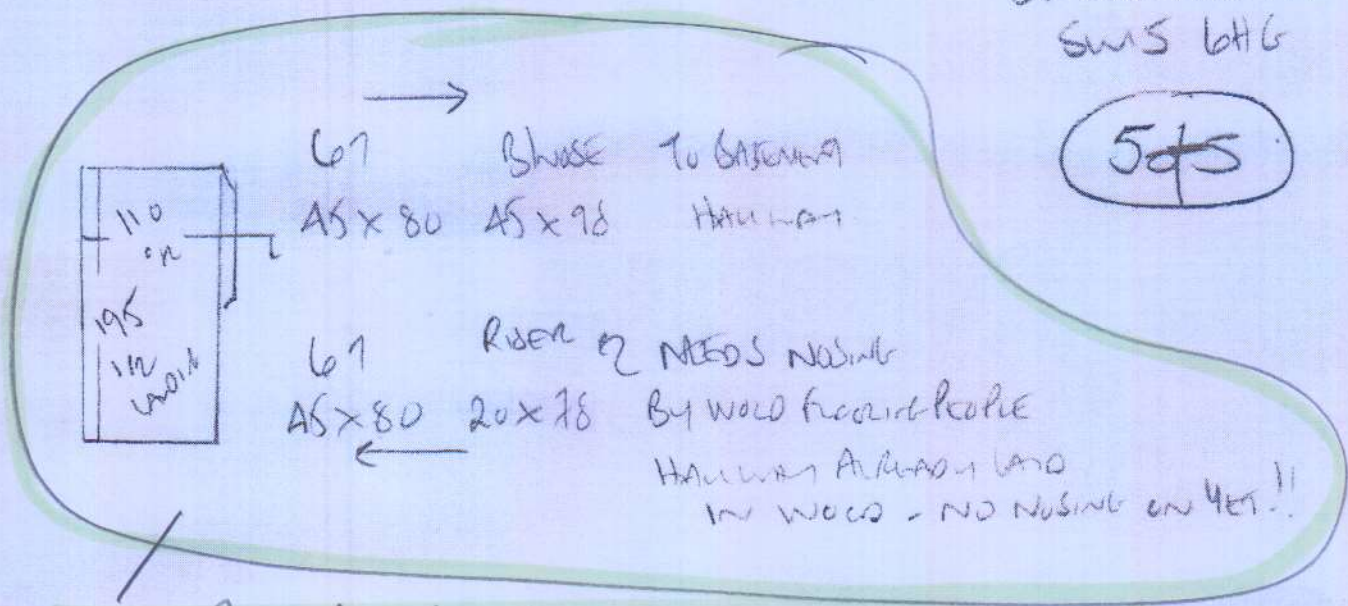 SW15 6HG
5 of 5
67 BNOSE TO BASEMENT
45 x 80 45 x 98 HALLWAY
110
195
LANDING
67 RISER NEEDS NOSING
45 x 80 20 x 78 BY WOOD FLOORING PEOPLE
HALLWAY ALREADY LAID
IN WOOD - NO NOSING ON YET!!